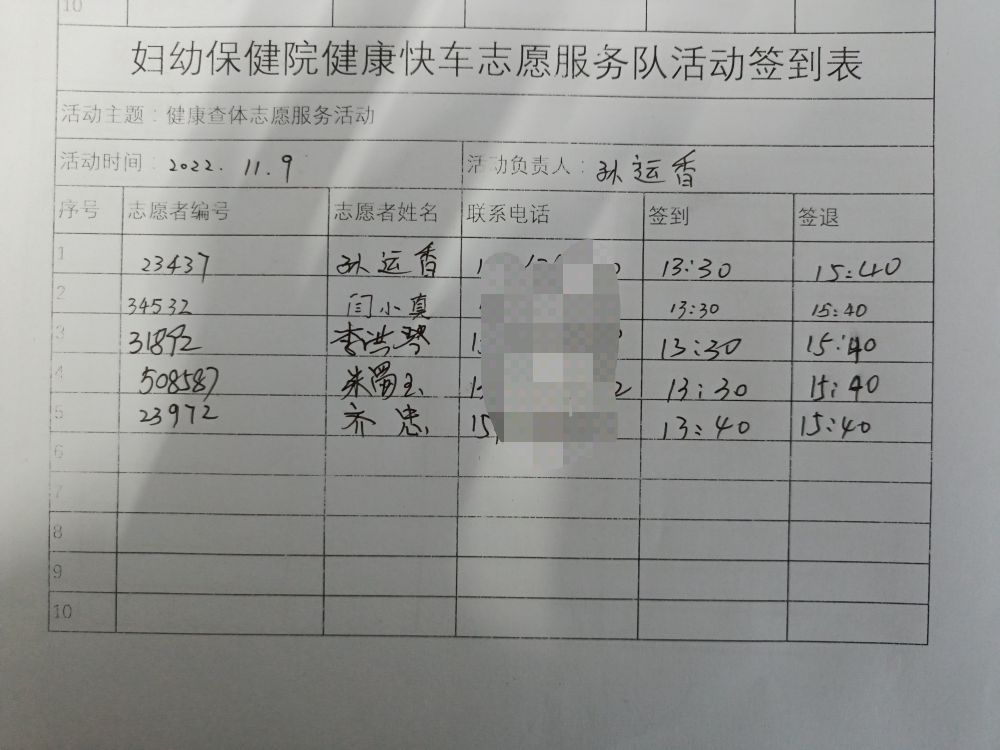 10
妇幼保健院健康快车志愿服务队活动签到表
活动主题：健康查体志愿服务活动
活动时间：2022.11.9 活动负责人：孙运香
序号 志愿者编号 志愿者姓名 联系电话 签到 签退
1 23437 孙运香 13:30 15:40
2 34532 闫小真 13:30 15:40
3 李洪琴 13:30 15:40
4 508587 13:30 15:40
5 23972 齐忠 15 13:40 15:40
6
7
8
9
10